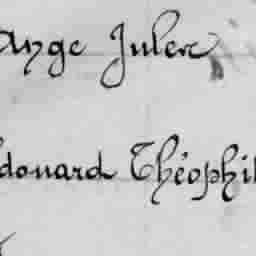 Ange Julere
douard Théophil